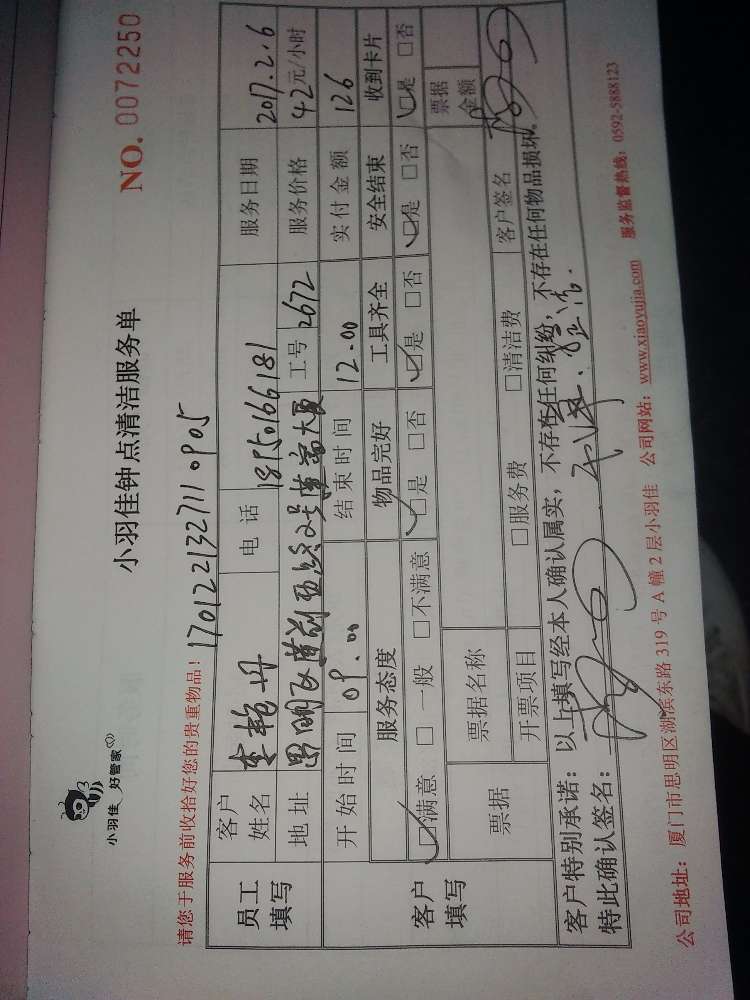 小羽佳 好管家
小羽佳钟点清洁服务单
NO. 0072250
请您于服务前收拾好您的贵重物品！
1701221327110905
员工填写
客户姓名 李艳丹 电话 18750166181 服务日期 2017.2.6
地址 思明区 2号 大厦 工号 2672 服务价格 42元/小时
客户填写
开始时间 09.00 结束时间 12.00 实付金额 126
服务态度 物品完好 工具齐全 安全结束 收到卡片
☑满意 □一般 □不满意 ☑是 □否 ☑是 □否 ☑是 □否 ☑是 □否
票据 票据名称 票据金额
开票项目 □服务费 □清洁费 客户签名
客户特别承诺：以上填写经本人确认属实，不存在任何纠纷，不存在任何物品损坏。
特此确认签名：
公司地址：厦门市思明区湖滨东路319号A幢2层小羽佳 公司网站：www.xiaoyujia.com 服务监督热线：0592-5888123